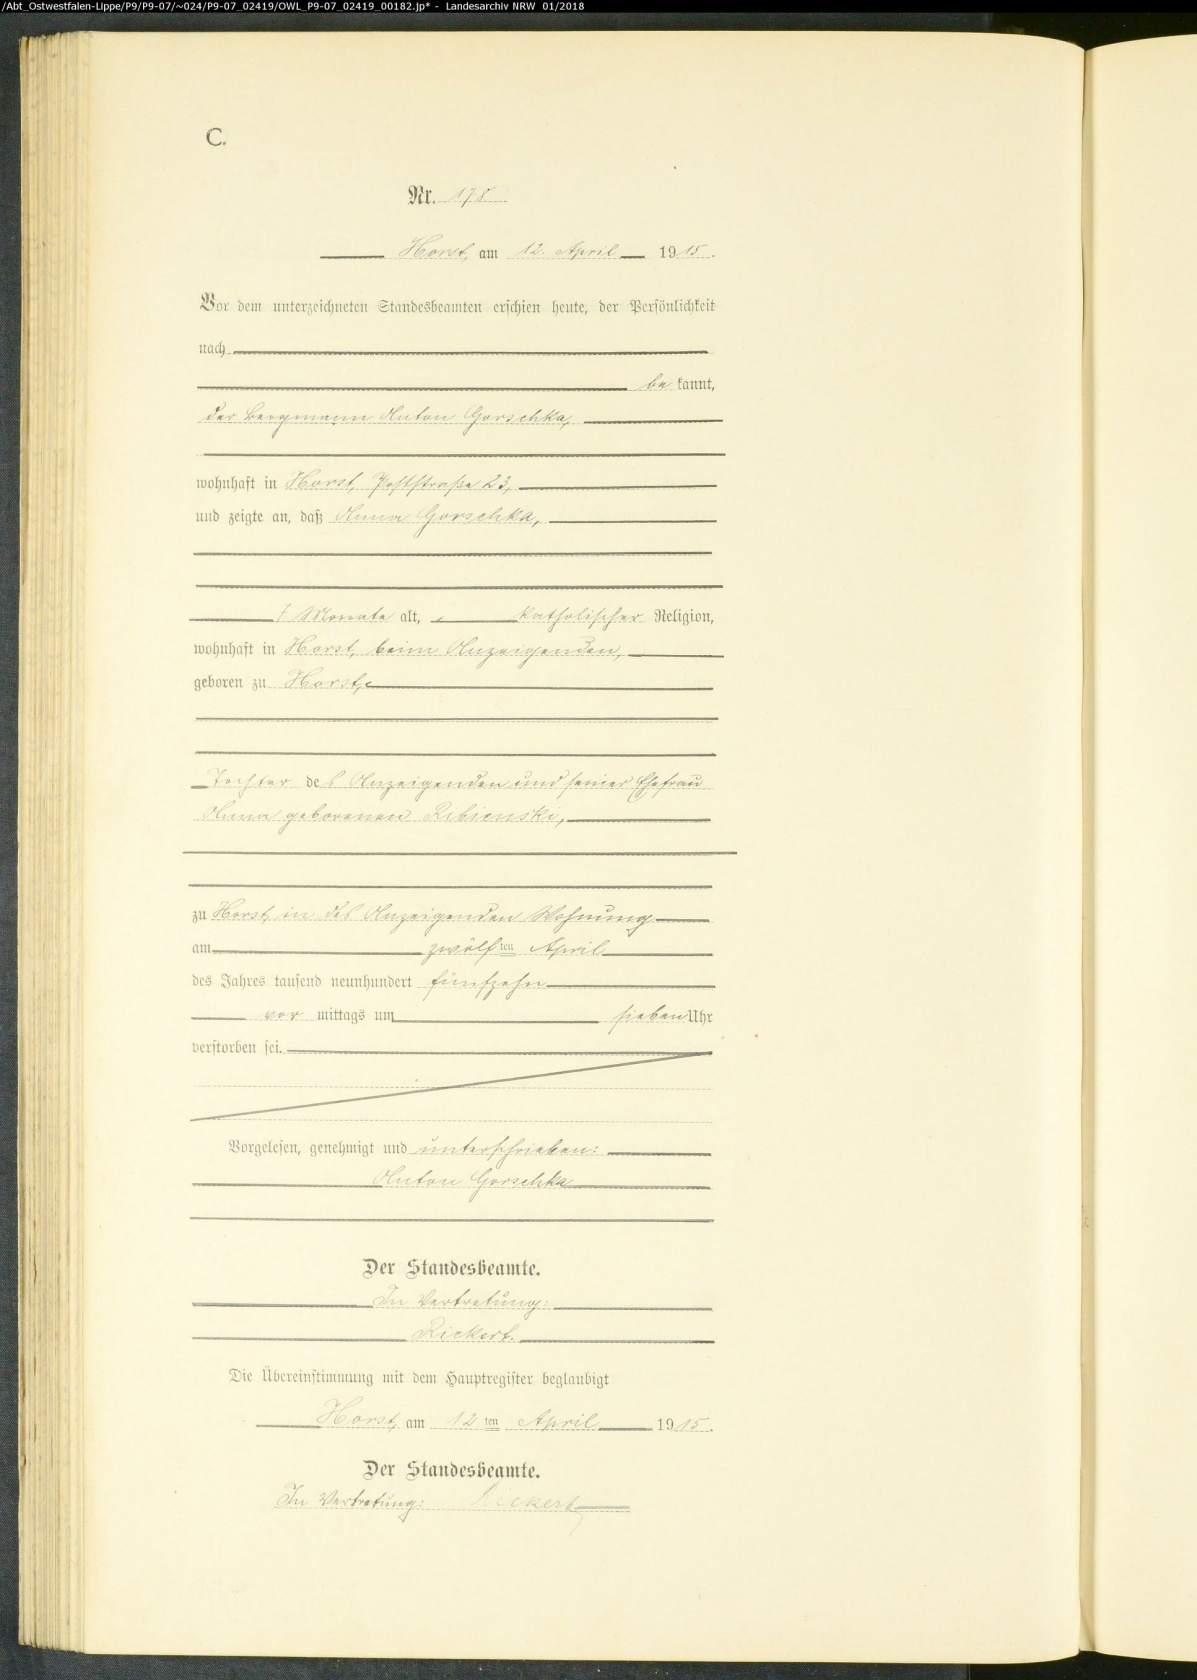 /Abt_Ostwestfalen-Lippe/P9/P9-07/~024/P9-07_02419/OWL_P9-07_02419_00182.jp* - Landesarchiv NRW 01/2018
C.
Nr. 178
Horst, am 12. April 1915.
Vor dem unterzeichneten Standesbeamten erschien heute, der Persönlichkeit
nach
be kannt,
der Bergmann Anton Gorschka,
wohnhaft in Horst, Poststraße 23,
und zeigte an, daß Anna Gorschka,
7 Monate alt, katholischer Religion,
wohnhaft in Horst, beim Anzeigenden,
geboren zu Horst,
Tochter des Anzeigenden und seiner Ehefrau
Anna geborenen Ribienski,
zu Horst, in des Anzeigenden Wohnung
am zwölf ten April
des Jahres tausend neunhundert fünfzehn
vor mittags um sieben Uhr
verstorben sei.
Vorgelesen, genehmigt und unterschrieben:
Anton Gorschka
Der Standesbeamte.
In Vertretung:
Rickert.
Die Übereinstimmung mit dem Hauptregister beglaubigt
Horst, am 12 ten April 1915.
Der Standesbeamte.
In Vertretung: Rickert